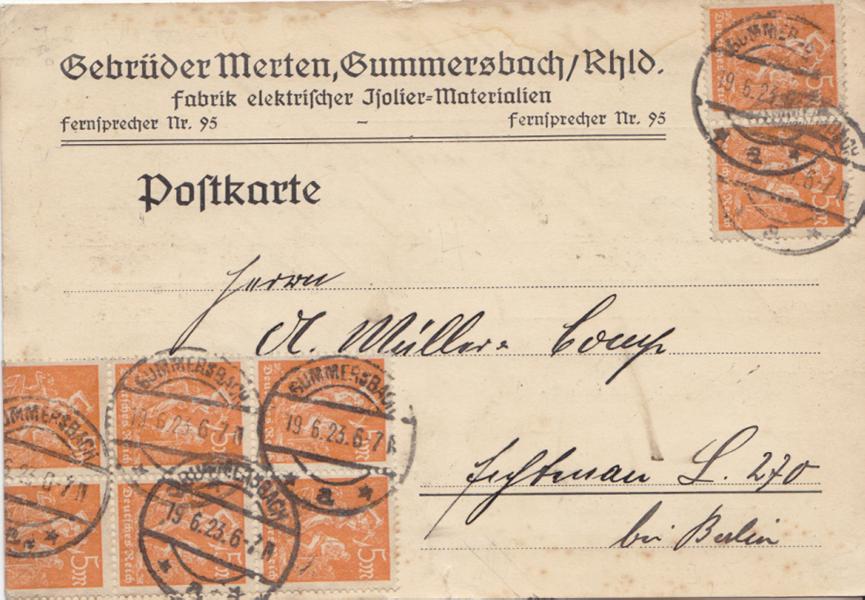 Gebrüder Merten, Gummersbach/Rhld.
Fabrik elektrischer Isolier-Materialien
Fernsprecher Nr. 95 – Fernsprecher Nr. 95
Postkarte
Herrn
A. Müller Comp
L. 270
bei Berlin
GUMMERSBACH
19.6.23.6-7N
a
5M
Deutsches Reich
GUMMERSBACH
19.6.23.6-7N
GUMMERSBACH
19.6.23.6-7N
a
GUMMERSBACH
19.6.23.6-7N
a
Deutsches Reich
5M
Deutsches Reich
5M